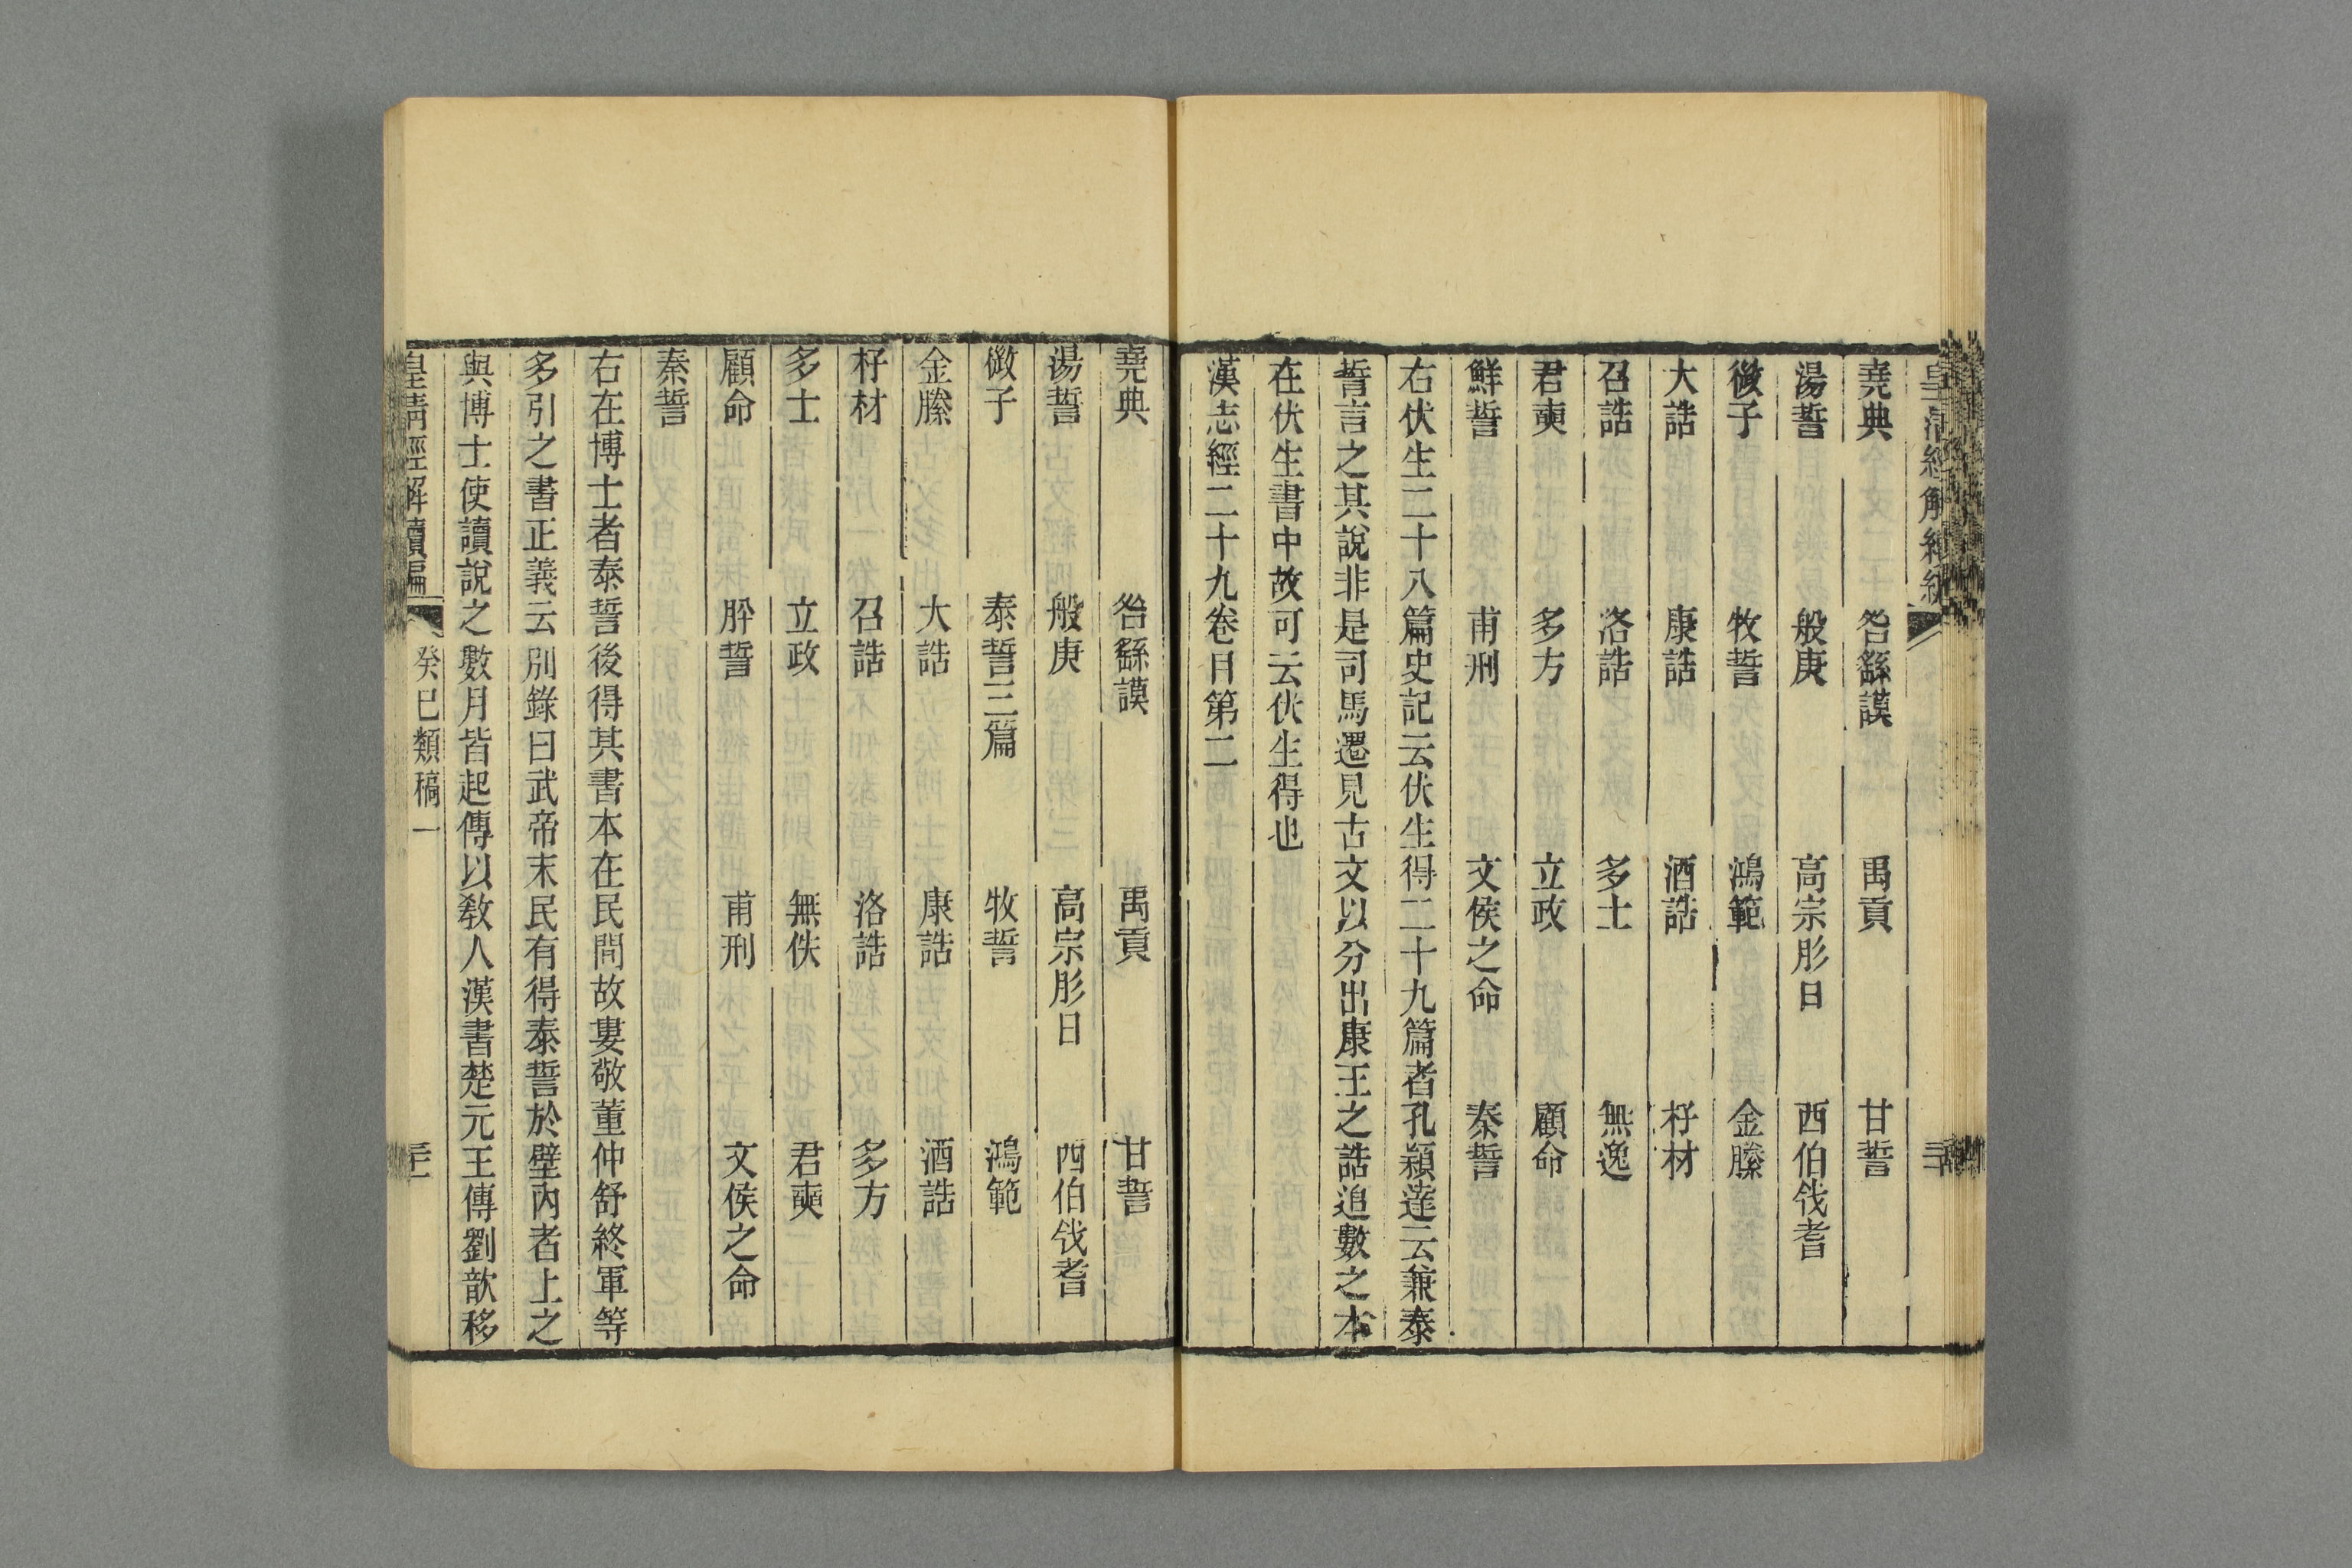 堯典　咎繇謨　禹貢　甘誓
湯誓　般庚　高宗肜日　西伯戗耆
微子　牧誓　鴻範　金縢
大誥　康誥　酒誥　杍材
召誥　洛誥　多士　無逸
君奭　多方　立政　顧命
鮮誓　甫刑　文侯之命　秦誓
右伏生二十八篇史記云伏生得二十九篇者孔穎達云兼泰
誓言之其說非是司馬遷見古文以分出康王之誥追數之本
在伏生書中故可云伏生得也
漢志經二十九卷目第二
堯典　咎繇謨　禹貢　甘誓
湯誓　般庚　高宗肜日　西伯戗耆
微子　泰誓三篇　牧誓　鴻範
金縢　大誥　康誥　酒誥
杍材　召誥　洛誥　多方
多士　立政　無佚　君奭
顧命　肸誓　甫刑　文侯之命
秦誓
右在博士者泰誓後得其書本在民間故婁敬董仲舒終軍等
多引之書正義云別錄曰武帝末民有得泰誓於壁內者上之
與博士使讀說之數月皆起傳以敎人漢書楚元王傳劉歆移
皇清經解續編　癸巳類稿一